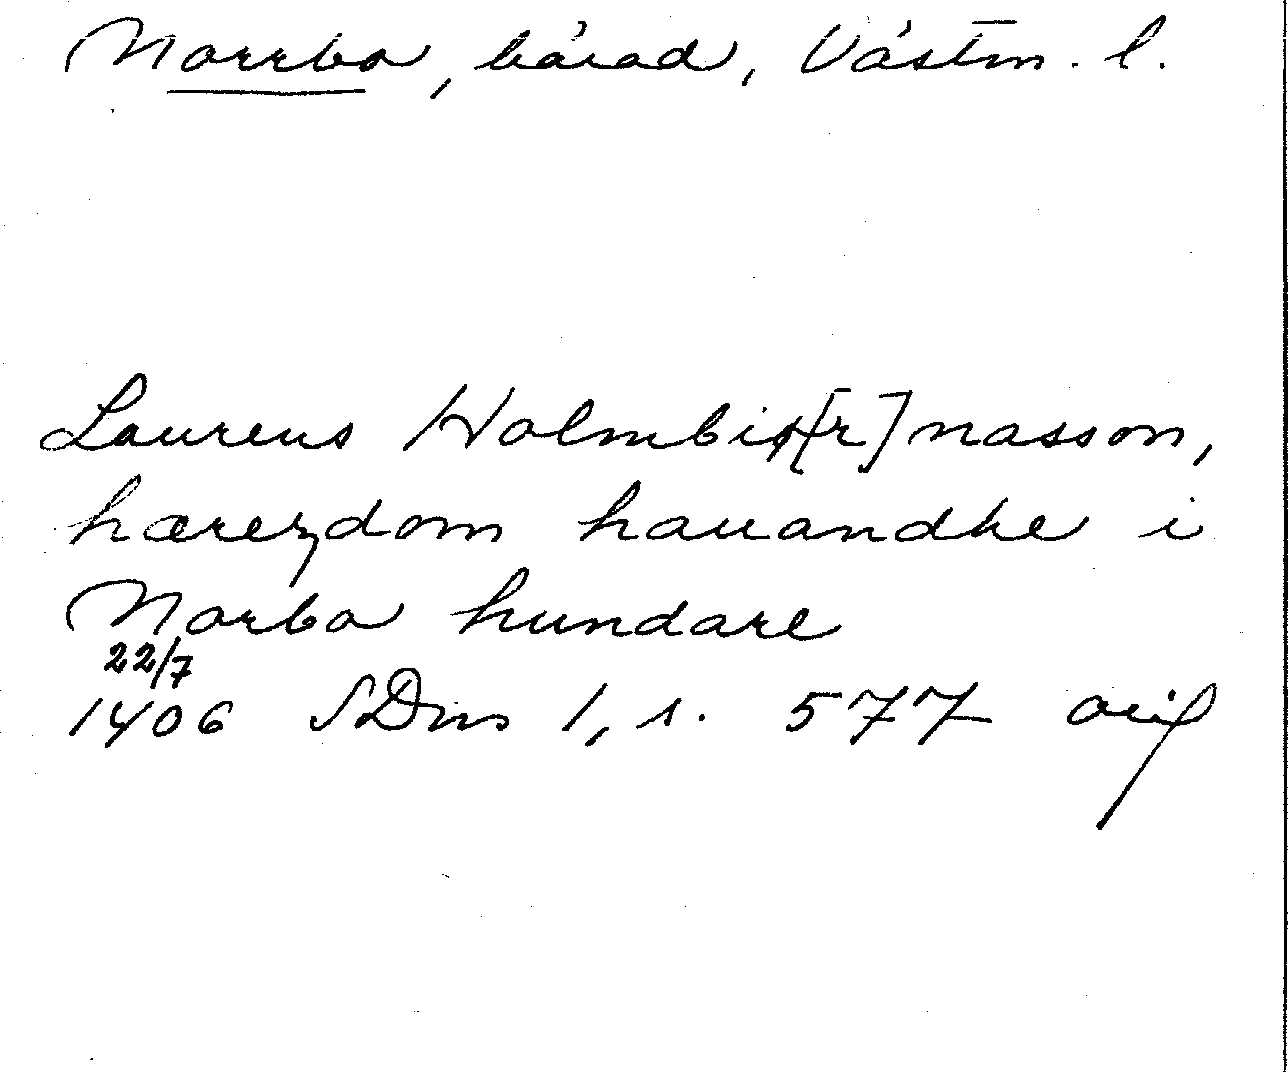 Norrbo, härad, Västm. l.
Laurens Holmbiø[r]nasson,
hærezdom hauandhe i
Norbo hundare
22/7
1406 SDns 1, s. 577 orig